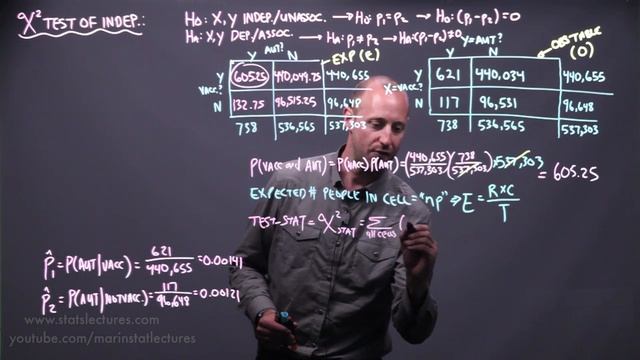 χ² TEST OF INDEP.:
Ho: X,Y INDEP./UNASSOC. → Ho: p₁=p₂ → Ho: (p₁-p₂)=0
Ha: X,Y DEP./ASSOC. → Ha: p₁≠p₂ → Ha: (p₁-p₂)≠0
AUT?
Y N EXP (E)
VACC? Y 605.25 440,049.75 440,655
N 132.75 96,515.25 96,648
738 536,565 537,303
Y=AUT?
Y N OBS TABLE (O)
X=VACC? Y 621 440,034 440,655
N 117 96,531 96,648
738 536,565 537,303
P(VACC and AUT) = P(VACC) P(AUT) = (440,655/537,303)(738/537,303)×537,303 = 605.25
EXPECTED # PEOPLE IN CELL = "np" ⇒ E = R×C/T
TEST-STAT = χ²STAT = Σ all cells (
p̂₁ = P(AUT|VACC) = 621/440,655 = 0.00141
p̂₂ = P(AUT|NOT VACC) = 117/96,648 = 0.00121
www.statslectures.com
youtube.com/marinstatlectures